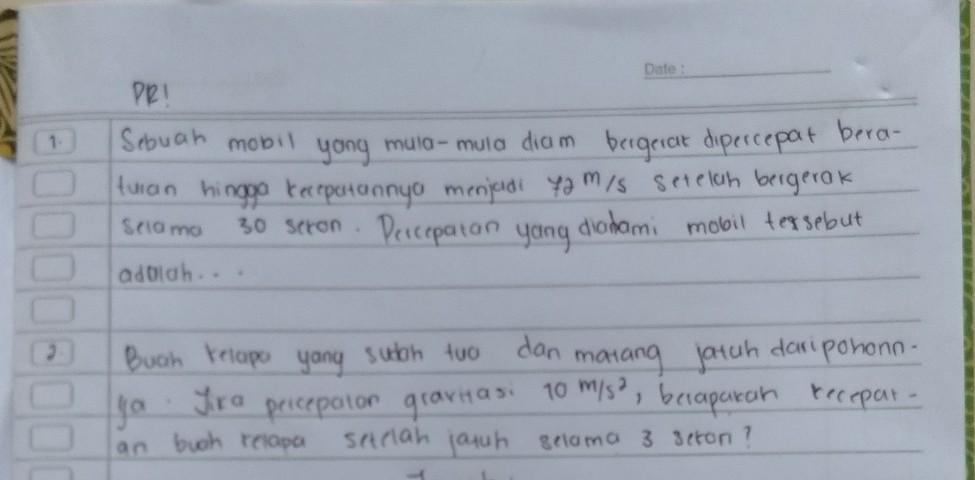 Date :
PR!
1. Sebuah mobil yang mula-mula diam bergerak dipercepat bera-
turan hingga kecepatannya menjadi 72 m/s setelah bergerak
selama 30 sekon. Percepatan yang dialami mobil tersebut
adalah...
2. Buah kelapa yang sudah tua dan matang jatuh dari pohonn-
ya. Jika percepatan gravitasi 10 m/s², berapakah kecepat-
an buah kelapa setelah jatuh selama 3 sekon?